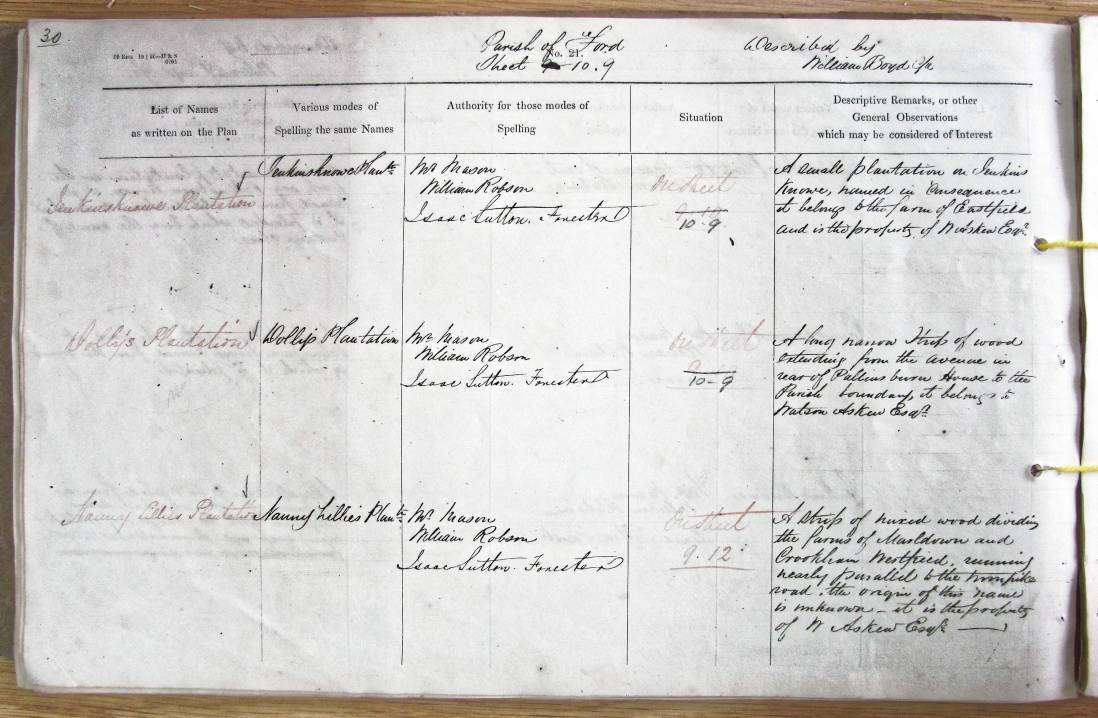 30
Parish of Ford
No. 21.
Sheet 10.9
Described by
William Boyd
List of Names
as written on the Plan
Various modes of
Spelling the same Names
Authority for those modes of
Spelling
Situation
Descriptive Remarks, or other
General Observations
which may be considered of Interest
Jenkinsknowe Plantation
Jenkinsknowe Plantn
Mr Mason
William Robson
Isaac Sutton. Forester
On Sheet
10.9
A small plantation on Jenkins
Knowe, named in Consequence
it belongs to the farm of Eastfield
and is the property of W Askew Esqr.
Dolly's Plantation
Dollys Plantation
Mr Mason
William Robson
Isaac Sutton. Forester
On Sheet
10-9
A long narrow Strip of wood
extending from the avenue in
rear of Pallinsburn House to the
Parish boundary it belongs to
Watson Askew Esqr.
Nanny Lillies Plantation
Nanny Lillies Plantn
Mr Mason
William Robson
Isaac Sutton. Forester
On Sheet
9.12
A strip of mixed wood dividing
the farms of Marldown and
Crookham Westfield, running
nearly parallel to the turnpike
road. the origin of this name
is unknown - it is the property
of W Askew Esqr